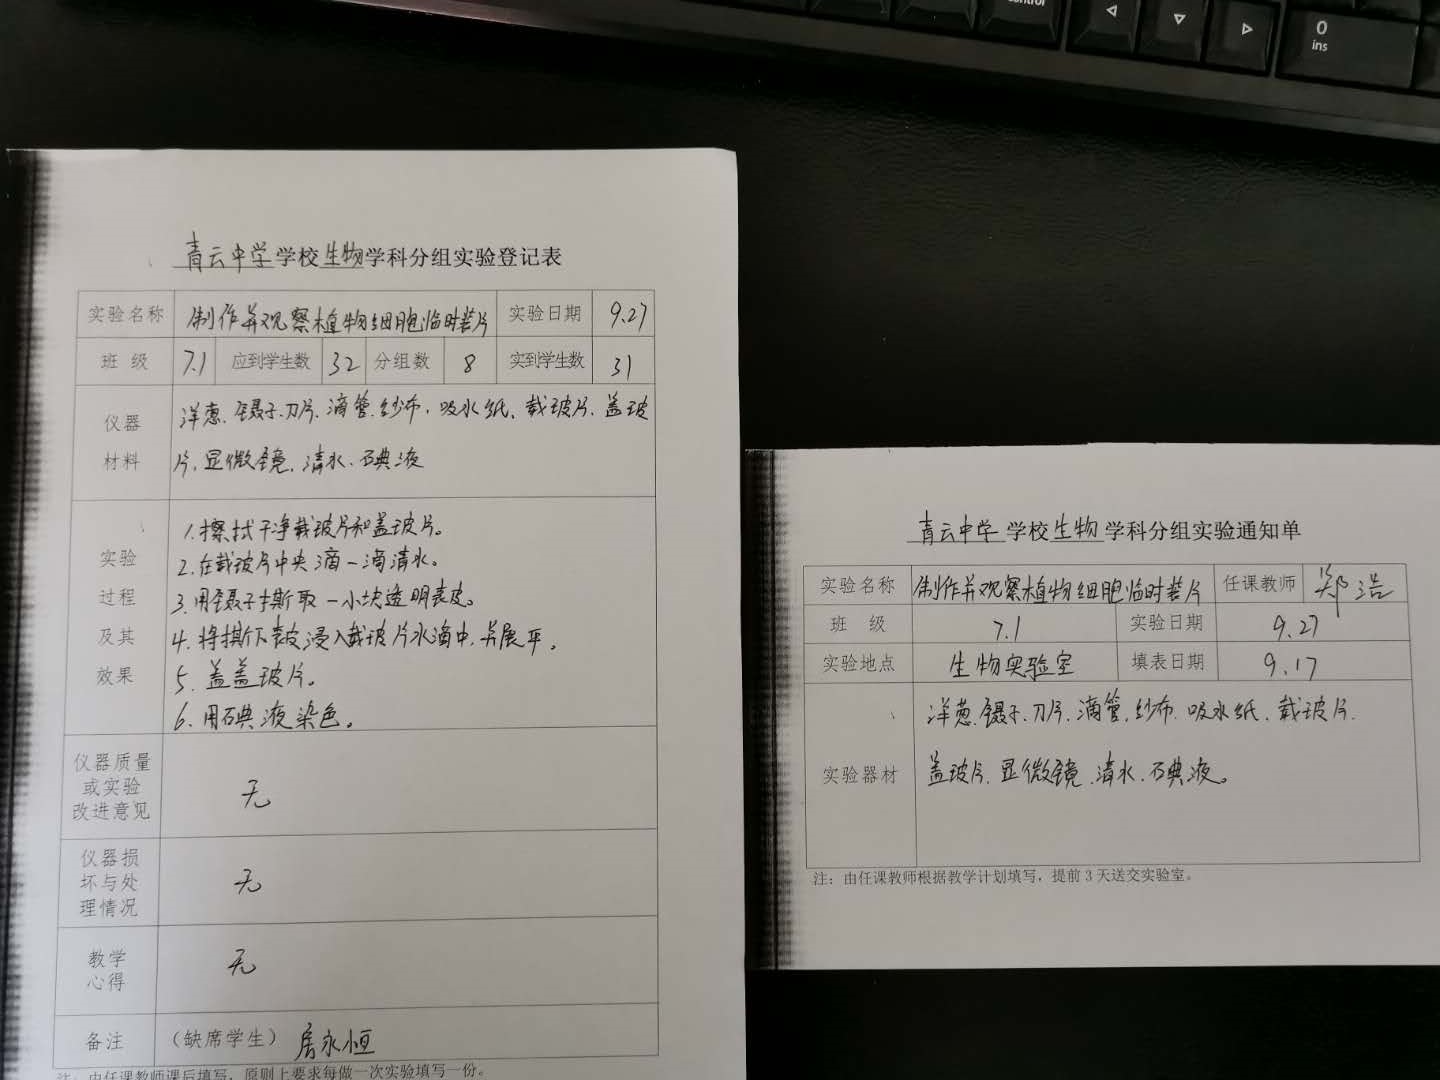 control
0
ins
青云中学学校生物学科分组实验登记表
实验名称 制作并观察植物细胞临时装片 实验日期 9.27
班 级 7.1 应到学生数 32 分组数 8 实到学生数 31
仪器材料
洋葱、镊子、刀片、滴管、纱布、吸水纸、载玻片、盖玻
片、显微镜、清水、碘液
实验过程及其效果
1.擦拭干净载玻片和盖玻片。
2.在载玻片中央滴一滴清水。
3.用镊子撕取一小块透明表皮。
4.将撕下表皮浸入载玻片水滴中,并展平。
5.盖盖玻片。
6.用碘液染色。
仪器质量或实验改进意见 无
仪器损坏与处理情况 无
教学心得 无
备注 (缺席学生) 房永恒
注:由任课教师课后填写,原则上要求每做一次实验填写一份。
青云中学学校生物学科分组实验通知单
实验名称 制作并观察植物细胞临时装片 任课教师 郑浩
班 级 7.1 实验日期 9.27
实验地点 生物实验室 填表日期 9.17
实验器材
洋葱、镊子、刀片、滴管、纱布、吸水纸、载玻片、
盖玻片、显微镜、清水、碘液。
注:由任课教师根据教学计划填写,提前3天送交实验室。